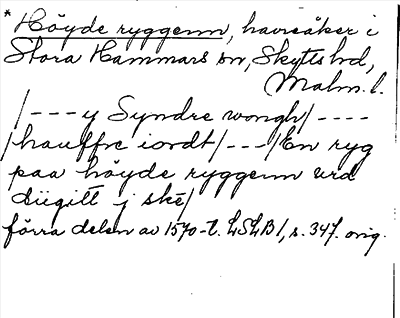 * Höyde ryggenn, havreåker i
Stora Hammars sn, Skytts hd,
Malm. l.
/---y Syndre wongh/----
/hauffre iordt/---/En ryg
paa höyde ryggenn ved
diigitt j ske/
förra delen av 1570-t. LSLB1, s. 347. orig.